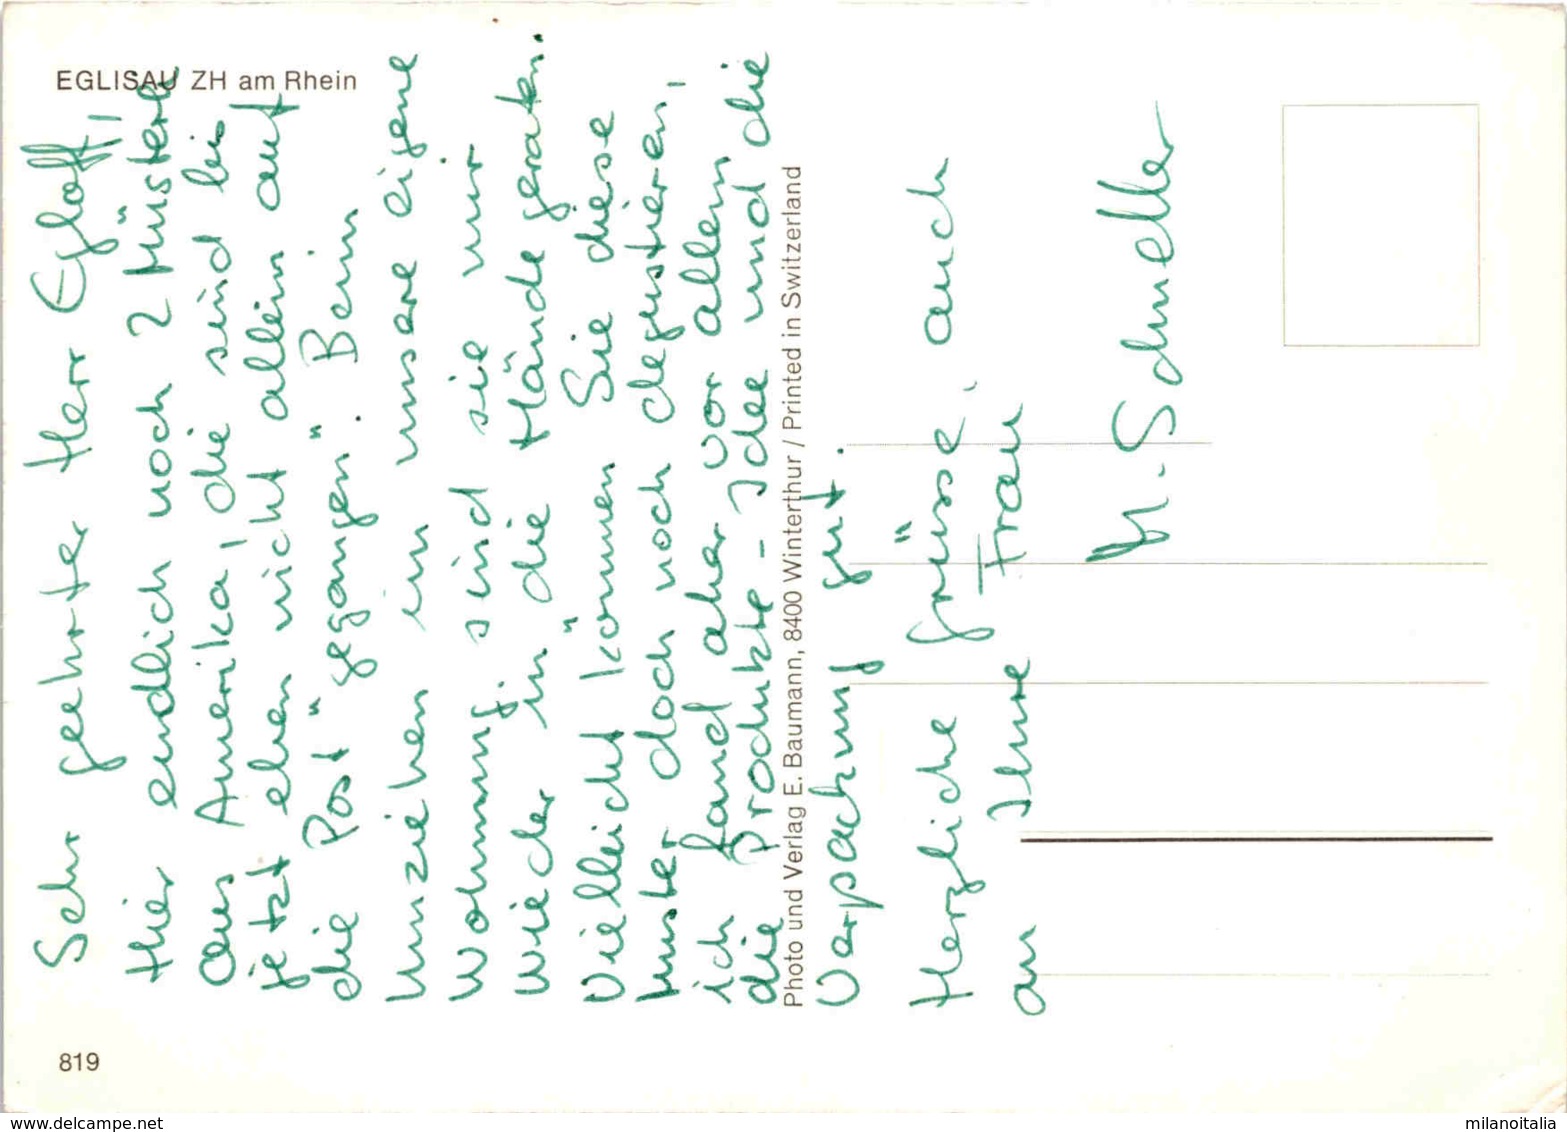 EGLISAU ZH am Rhein
Sehr geehrter Herr Egloff,
Hier endlich noch 2 Müsterli
aus Amerika, die sind bis
jetzt eben nicht allein auf
die "Post" gegangen". Beim
Umziehen in unsere eigene
Wohnung sind sie mir
wieder in die Hände geraten.
Vielleicht können Sie diese
Muster doch noch degustieren,
ich fand aber vor allem
die Produkte-Idee und die
Verpackung gut.
Herzliche Grüsse, auch
an Ihre Frau
Schneller
Photo und Verlag E. Baumann, 8400 Winterthur / Printed in Switzerland
819
www.delcampe.net
milanoitalia